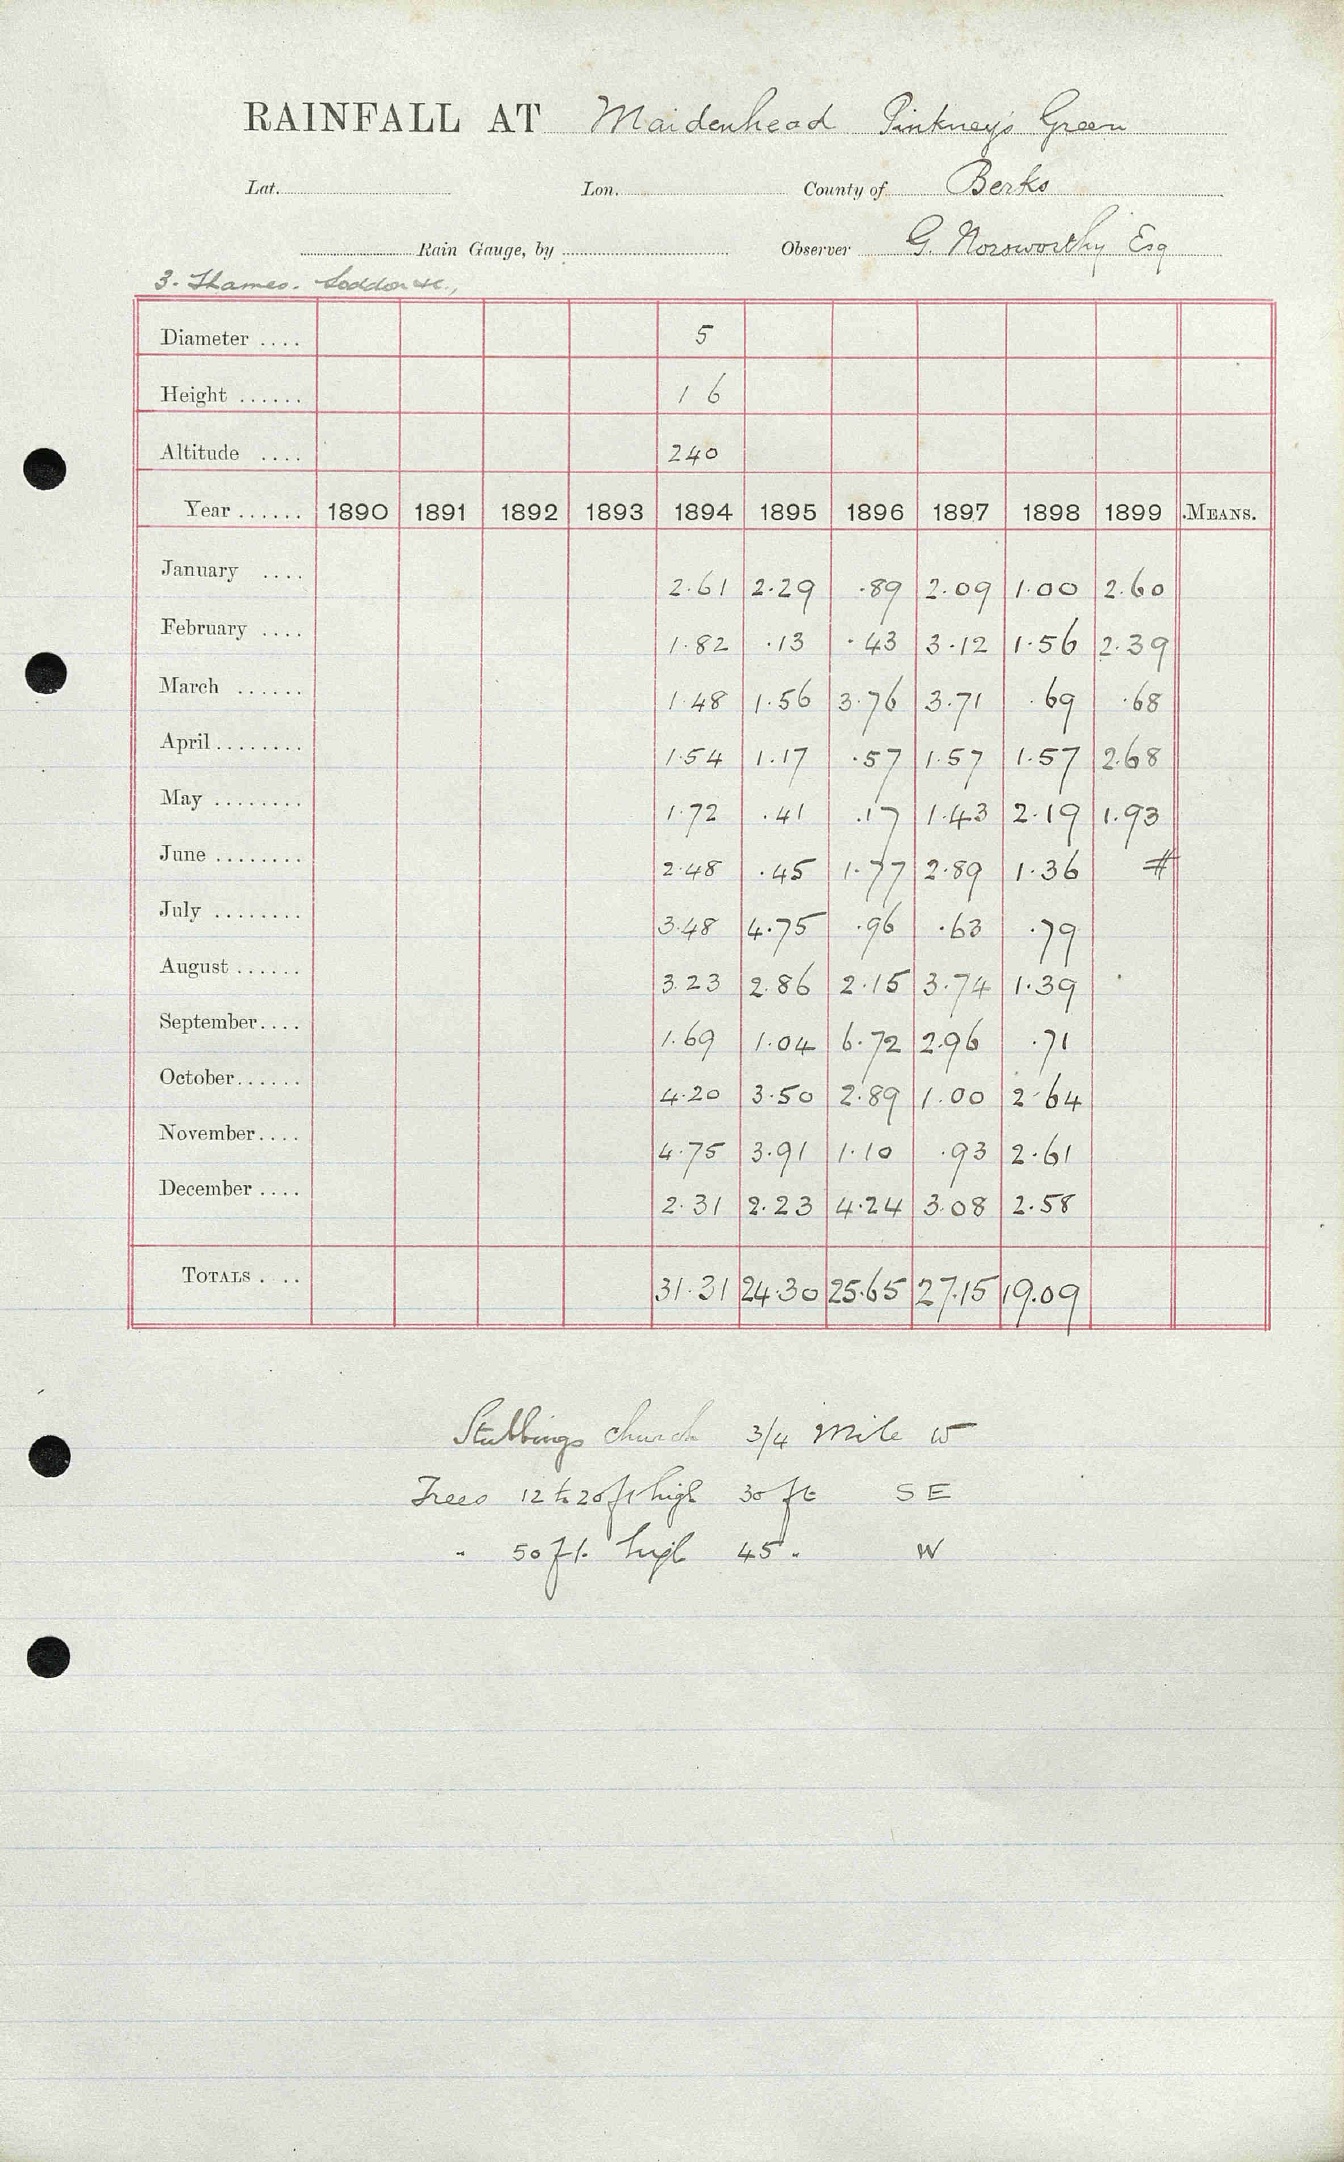 RAINFALL AT Maidenhead Pinkney's Green
Lat. Lon. County of Berks
Rain Gauge, by Observer G. Norsworthy Esq
3. Thames. Loddon &c.,
Diameter .... 5
Height ...... 1 6
Altitude .... 240
Year ...... 1890 1891 1892 1893 1894 1895 1896 1897 1898 1899 MEANS.
January .... 2.61 2.29 .89 2.09 1.00 2.60
February .... 1.82 .13 .43 3.12 1.56 2.39
March ...... 1.48 1.56 3.76 3.71 .69 .68
April ........ 1.54 1.17 .57 1.57 1.57 2.68
May ........ 1.72 .41 .17 1.43 2.19 1.93
June ........ 2.48 .45 1.77 2.89 1.36 #
July ........ 3.48 4.75 .96 .63 .79
August ...... 3.23 2.86 2.15 3.74 1.39
September .... 1.69 1.04 6.72 2.96 .71
October ...... 4.20 3.50 2.89 1.00 2.64
November .... 4.75 3.91 1.10 .93 2.61
December .... 2.31 2.23 4.24 3.08 2.58
TOTALS . .. 31.31 24.30 25.65 27.15 19.09
Stubbings church 3/4 Mile W
Trees 12 to 20 ft high 30 ft S E
" 50 ft. high 45 " W